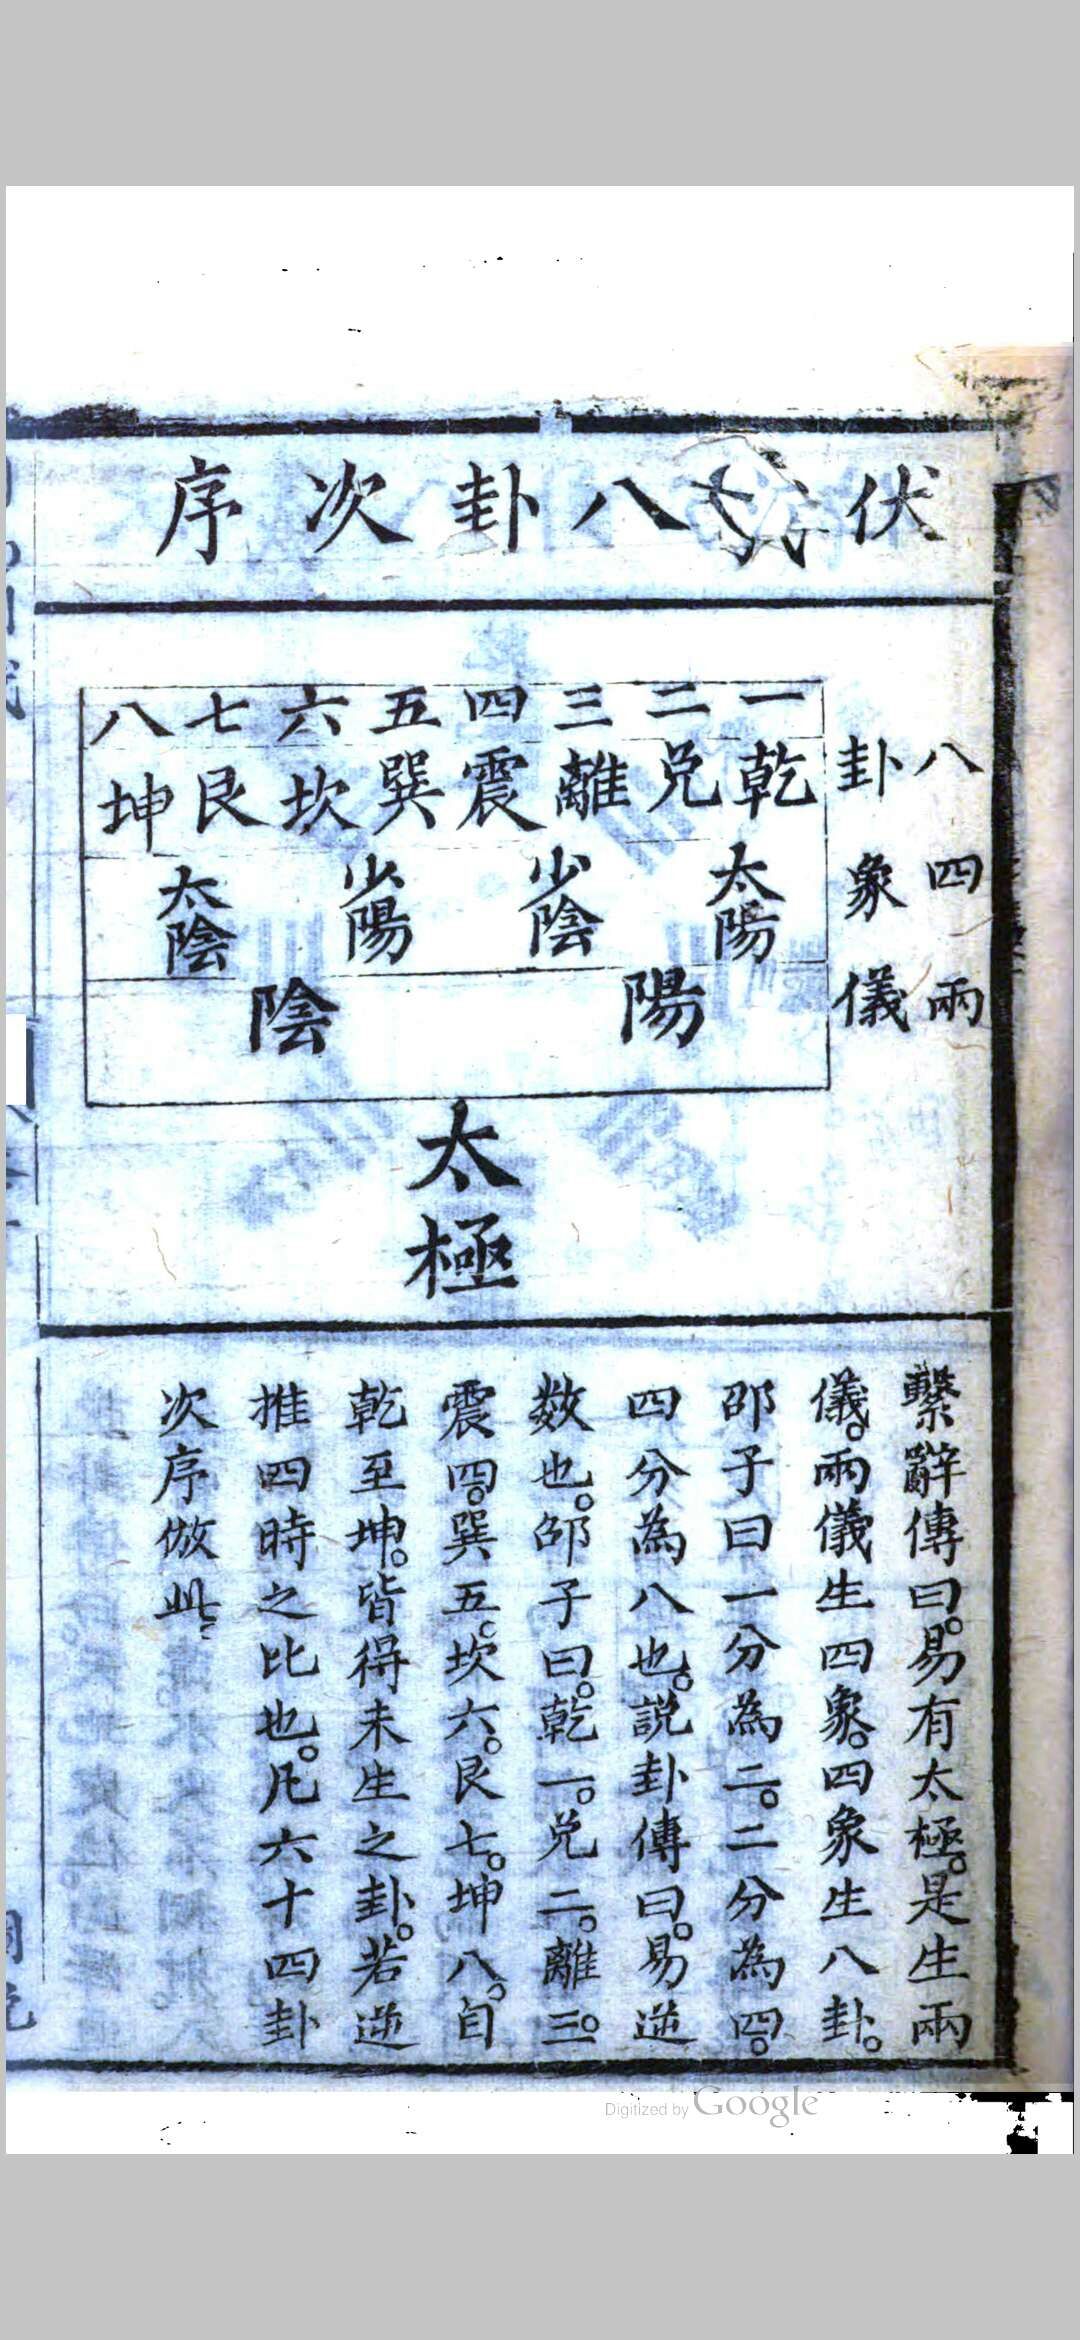 伏羲八卦次序
八卦
四象
兩儀
一 二 三 四 五 六 七 八
乾 兌 離 震 巽 坎 艮 坤
太陽 少陰 少陽 太陰
陽 陰
太極
繫辭傳曰。易有太極。是生兩
儀。兩儀生四象。四象生八卦。
邵子曰一分為二。二分為四。
四分為八也。說卦傳曰。易逆
数也。邵子曰。乾一。兌二。離三。
震四。巽五。坎六。艮七。坤八。自
乾至坤。皆得未生之卦。若逆
推四時之比也。凡六十四卦
次序倣此
Digitized by Google